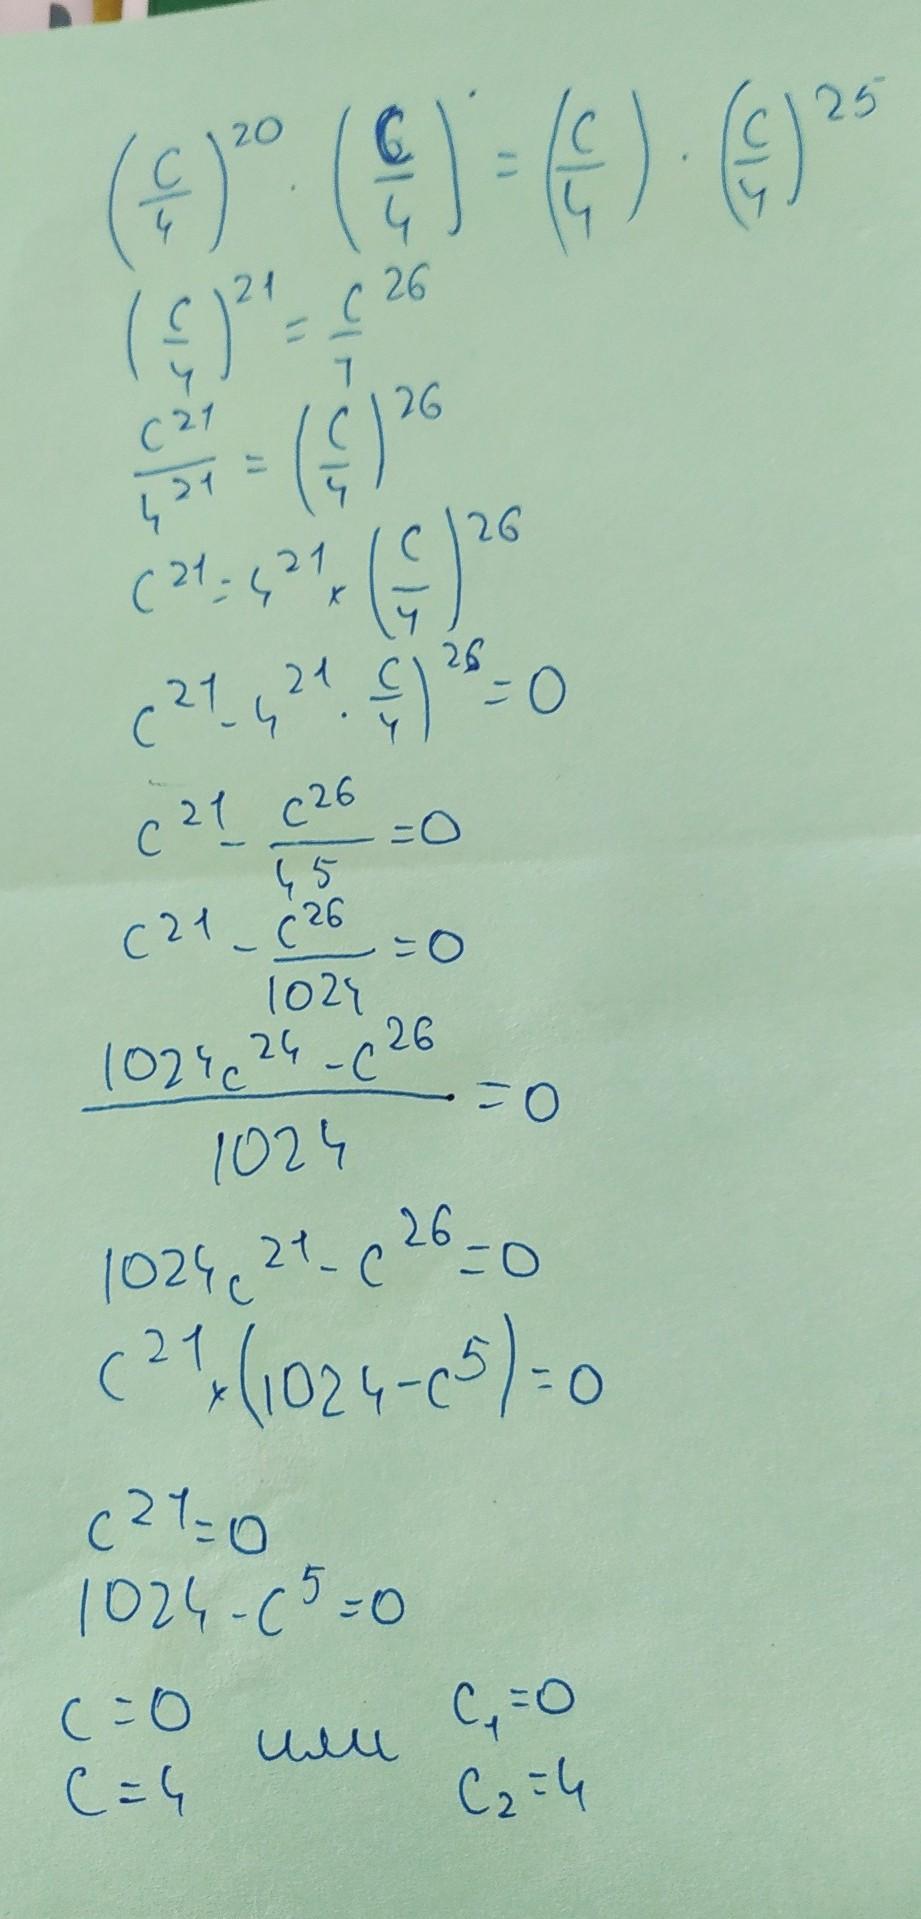 (c/4)^20 · (c/4) = (c/4) · (c/4)^25
(c/4)^21 = c/4^26
c^21/4^21 = (c/4)^26
c^21 = 4^21 × (c/4)^26
c^21 - 4^21 · c/4)^26 = 0
c^21 - c^26/4^5 = 0
c^21 - c^26/1024 = 0
(1024c^24 - c^26)/1024 = 0
1024c^21 - c^26 = 0
c^21 × (1024 - c^5) = 0
c^21 = 0
1024 - c^5 = 0
c = 0 или c₁ = 0
c = 4 c₂ = 4